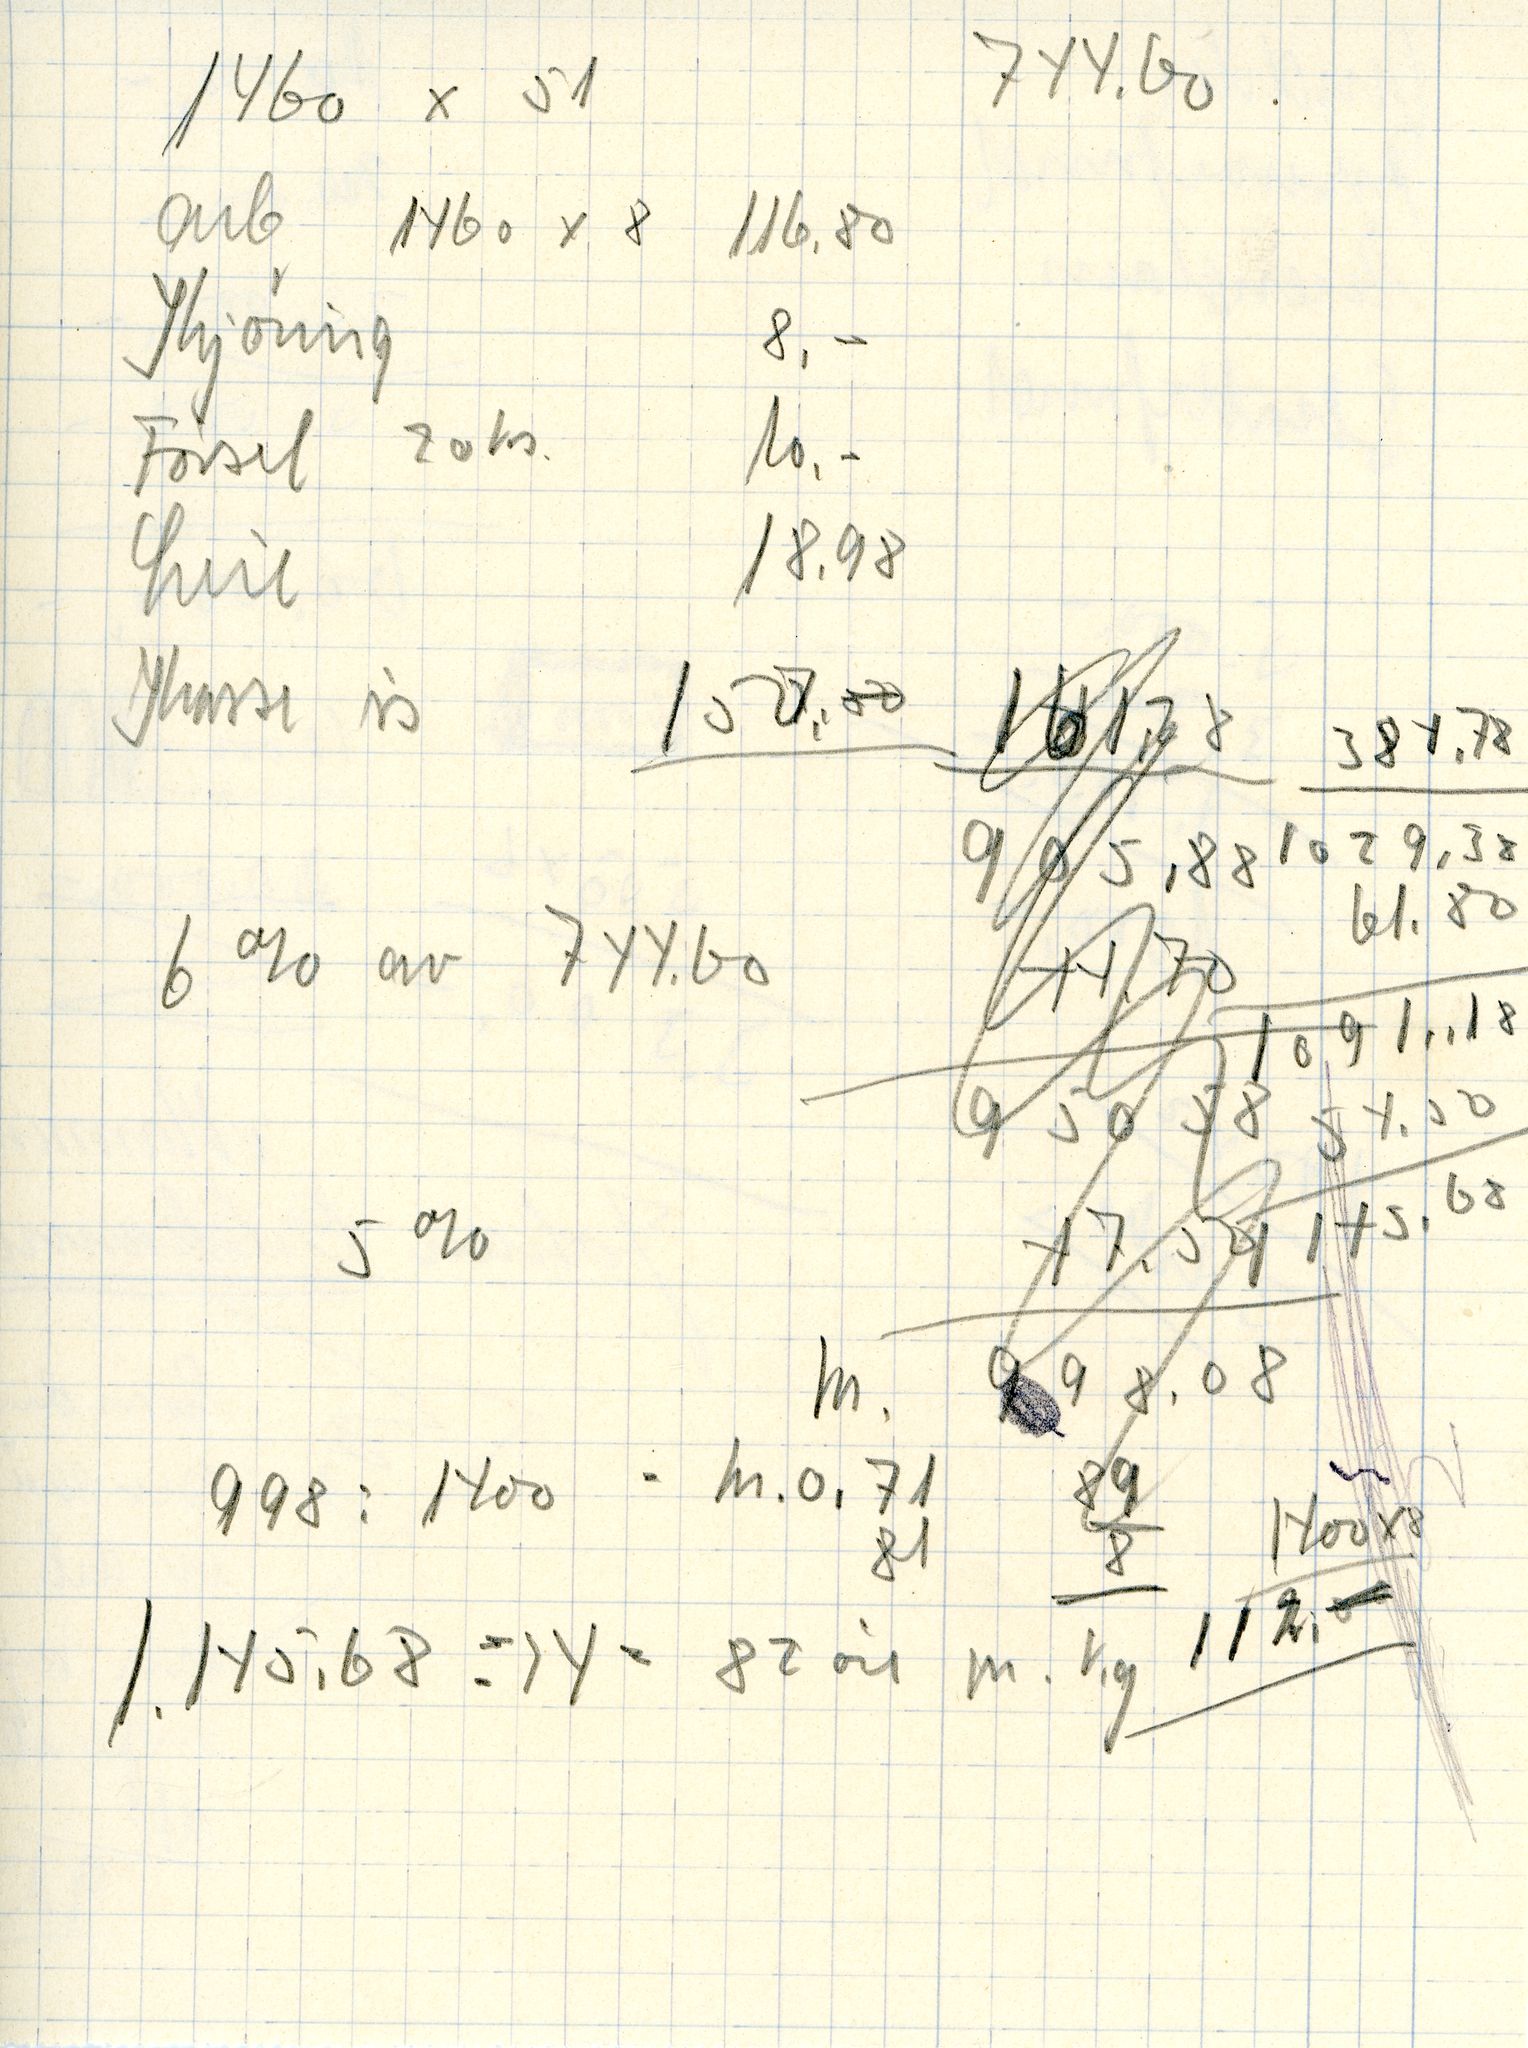 1460 x 51 744.60.
arb 1460 x 8 116.80
Kjöring 8.-
Försel 20 ks. 10.-
Leie 18.98
Kasse is 157.00 161,28 384.78
905,88 1029,38
61.80
6 % av 744.60 44.70
1091..18
950 58 54.50
5 % 47.50 1145.68
m. 998.08
998 : 1400 = m. 0.71 89 1400 x 8
81 8
112.0
1.145.68 : 14 = 82 öre m. kg